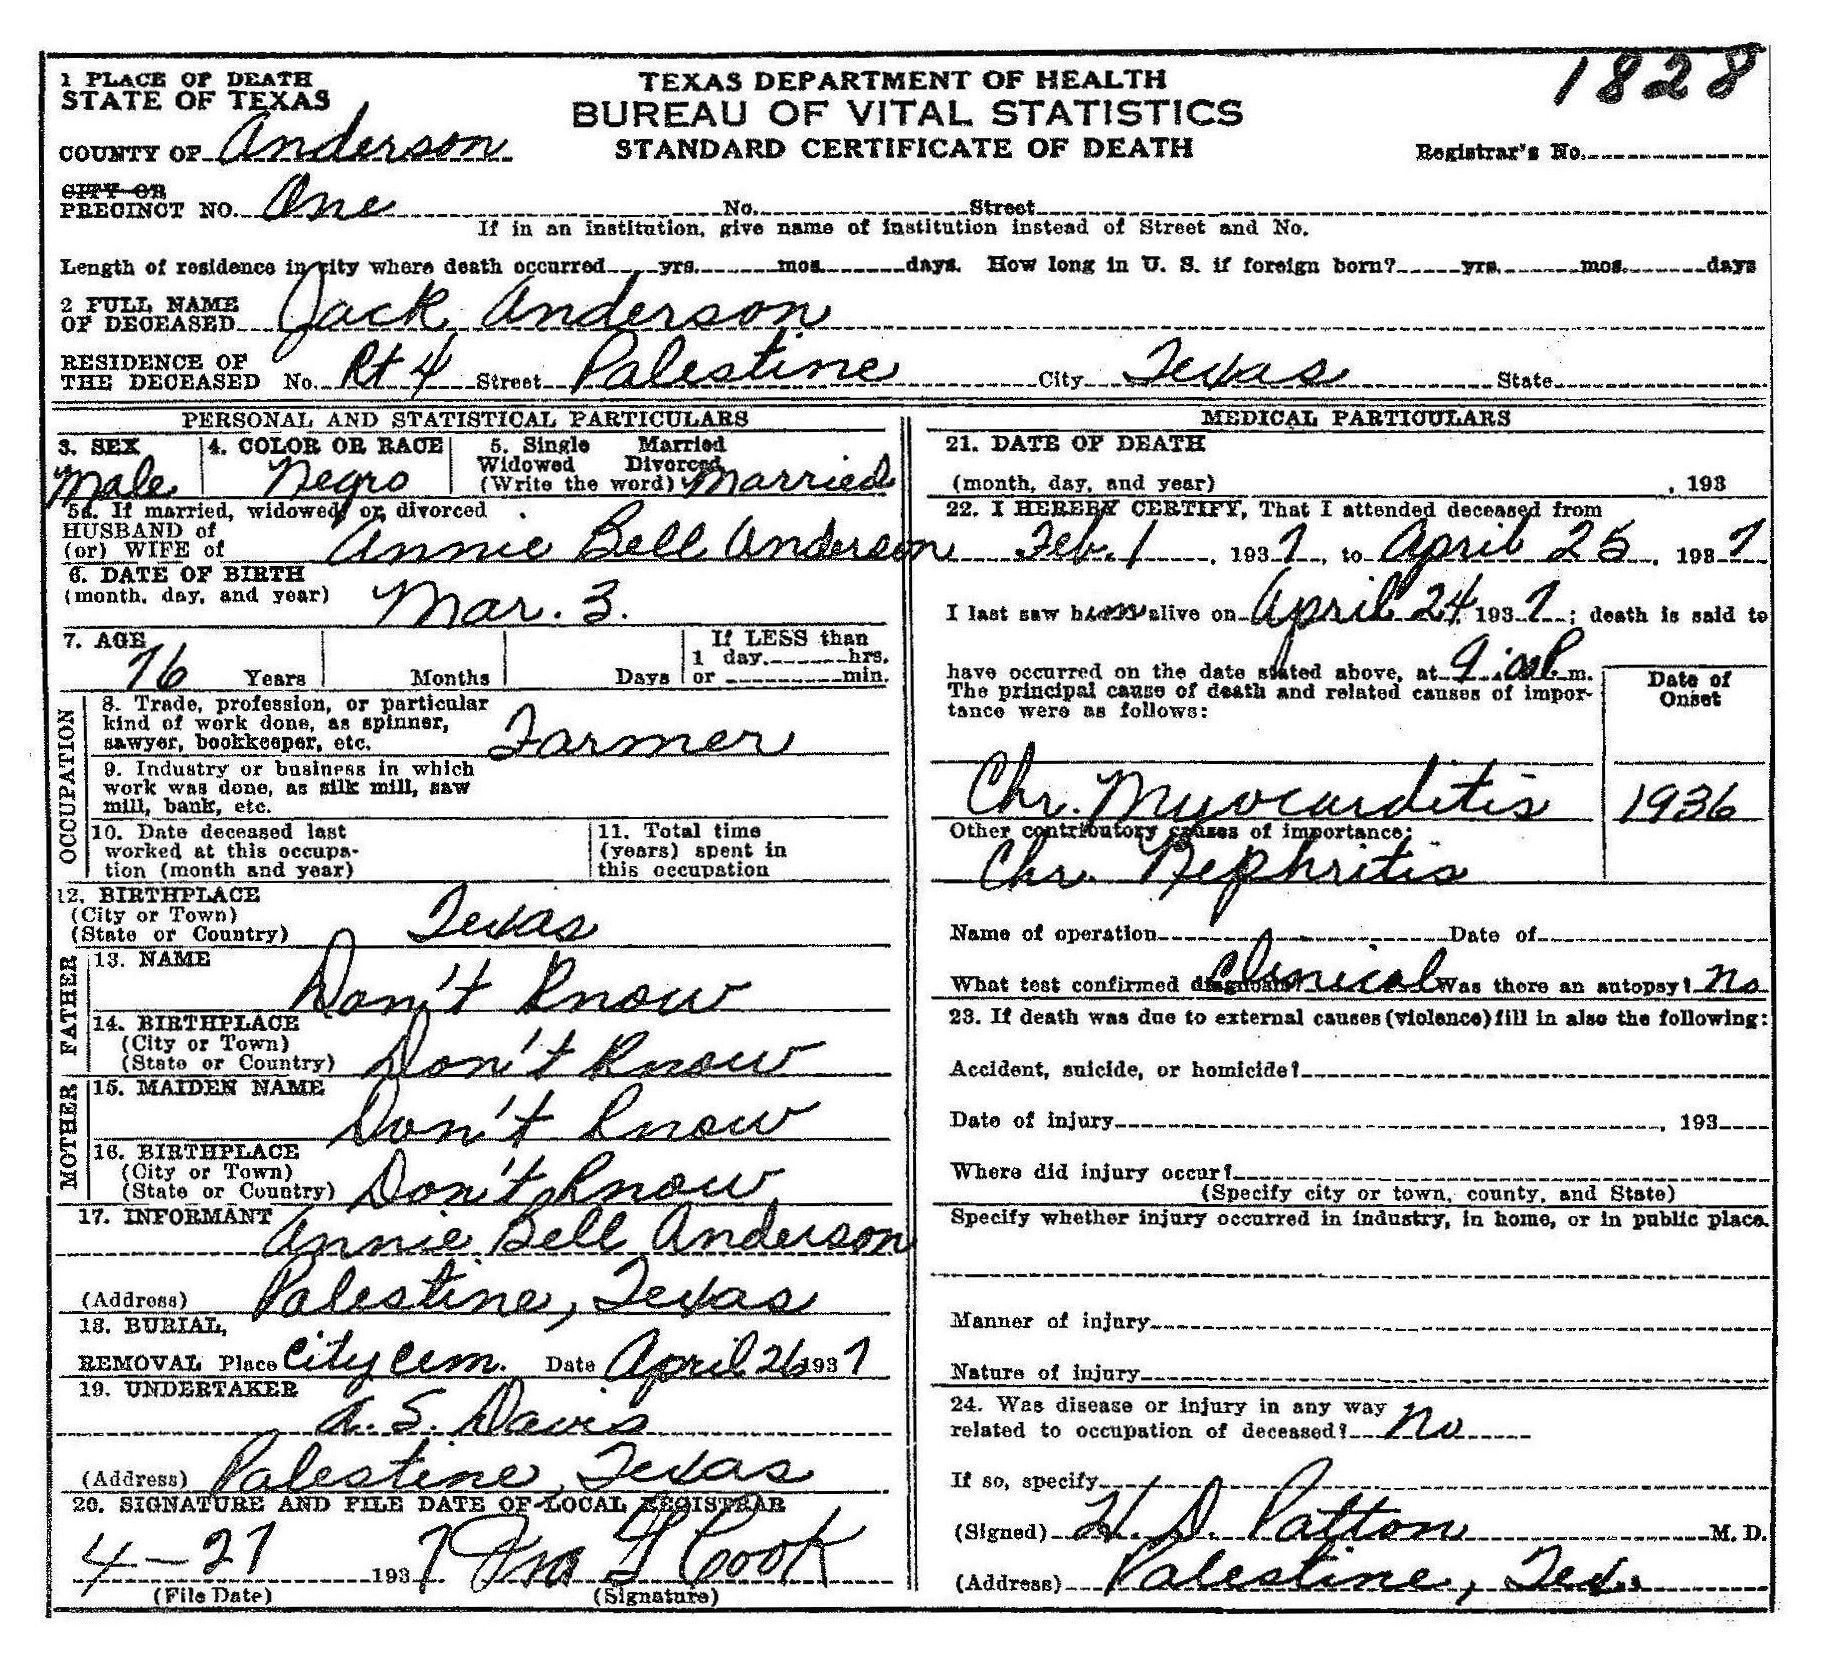 1 PLACE OF DEATH
STATE OF TEXAS
TEXAS DEPARTMENT OF HEALTH
BUREAU OF VITAL STATISTICS
STANDARD CERTIFICATE OF DEATH
1828
COUNTY OF Anderson
Registrar's No.
CITY OR
PRECINCT NO. One No. Street
If in an institution, give name of institution instead of Street and No.
Length of residence in city where death occurred yrs. mos. days. How long in U. S. if foreign born? yrs. mos. days
2 FULL NAME
OF DECEASED Jack Anderson
RESIDENCE OF
THE DECEASED No. Rt 4 Street Palestine City Texas State
PERSONAL AND STATISTICAL PARTICULARS
3. SEX
Male
4. COLOR OR RACE
Negro
5. Single Married
Widowed Divorced
(Write the word) Married
5a. If married, widowed, or divorced
HUSBAND of
(or) WIFE of Annie Bell Anderson
6. DATE OF BIRTH
(month, day, and year) Mar. 3.
7. AGE
76 Years Months Days
If LESS than
1 day hrs.
or min.
OCCUPATION
8. Trade, profession, or particular
kind of work done, as spinner,
sawyer, bookkeeper, etc. Farmer
9. Industry or business in which
work was done, as silk mill, saw
mill, bank, etc.
10. Date deceased last
worked at this occupa-
tion (month and year)
11. Total time
(years) spent in
this occupation
12. BIRTHPLACE
(City or Town)
(State or Country) Texas
FATHER
13. NAME
Don't Know
14. BIRTHPLACE
(City or Town)
(State or Country) Don't Know
MOTHER
15. MAIDEN NAME
Don't Know
16. BIRTHPLACE
(City or Town)
(State or Country) Don't Know
17. INFORMANT
Annie Bell Anderson
(Address) Palestine, Texas
18. BURIAL,
REMOVAL Place City Cem. Date April 26 1937
19. UNDERTAKER
A. S. Davis
(Address) Palestine, Texas
20. SIGNATURE AND FILE DATE OF LOCAL REGISTRAR
4-27 1937 Cook
(File Date) (Signature)
MEDICAL PARTICULARS
21. DATE OF DEATH
(month, day, and year) , 193
22. I HEREBY CERTIFY, That I attended deceased from
Feb. 1, 1937, to April 25, 1937
I last saw him alive on April 24, 1937; death is said to
have occurred on the date stated above, at m.
The principal cause of death and related causes of impor-
tance were as follows:
Date of
Onset
Chr. Myocarditis 1936
Other contributory causes of importance:
Chr. Nephritis
Name of operation Date of
What test confirmed diagnosis? Clinical Was there an autopsy? No
23. If death was due to external causes (violence) fill in also the following:
Accident, suicide, or homicide?
Date of injury , 193
Where did injury occur?
(Specify city or town, county, and State)
Specify whether injury occurred in industry, in home, or in public place.
Manner of injury
Nature of injury
24. Was disease or injury in any way
related to occupation of deceased? No
If so, specify
(Signed) H. D. Patton M. D.
(Address) Palestine, Tex.